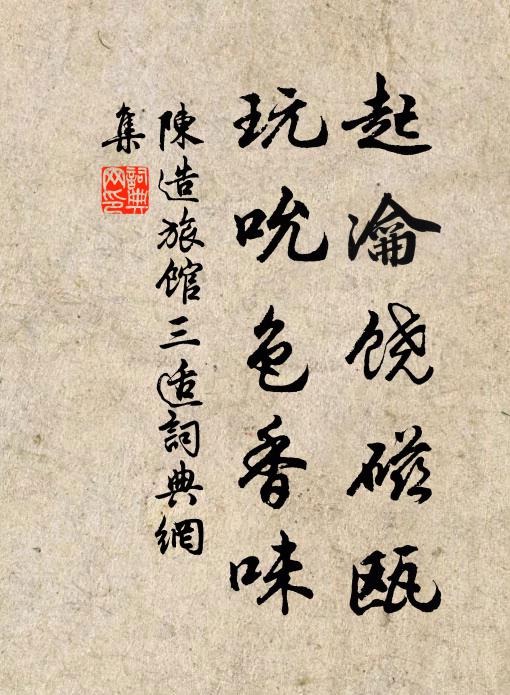 起瀹饶磁瓯
玩吮色香味
陳造旅館三适詞典網
集
詞典
网印